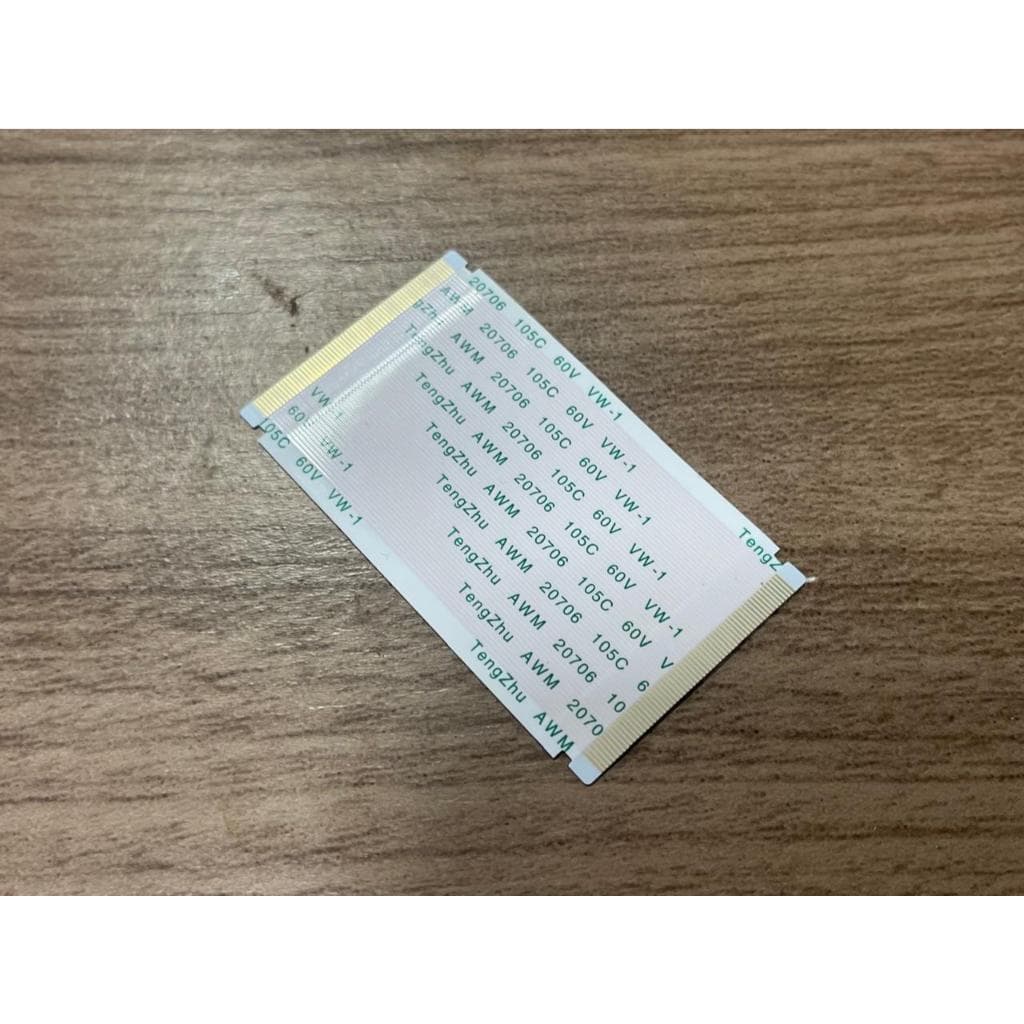 20706 105C 60V VW-1 TengZ
AWM 20706 105C 60V VW-1
gZhu AWM 20706 105C 60V VW-1
TengZhu AWM 20706 105C 60V VW-1
TengZhu AWM 20706 105C 60V VW-1
TengZhu AWM 20706 105C 60V V
TengZhu AWM 20706 105C 6
VW-1 TengZhu AWM 20706 10
60V VW-1 TengZhu AWM 2070
105C 60V VW-1 TengZhu AWM